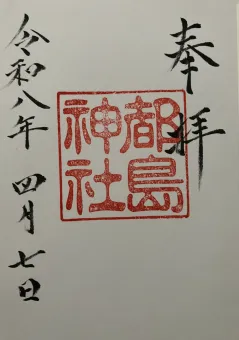 奉拝
都島
神社
令和八年 四月七日